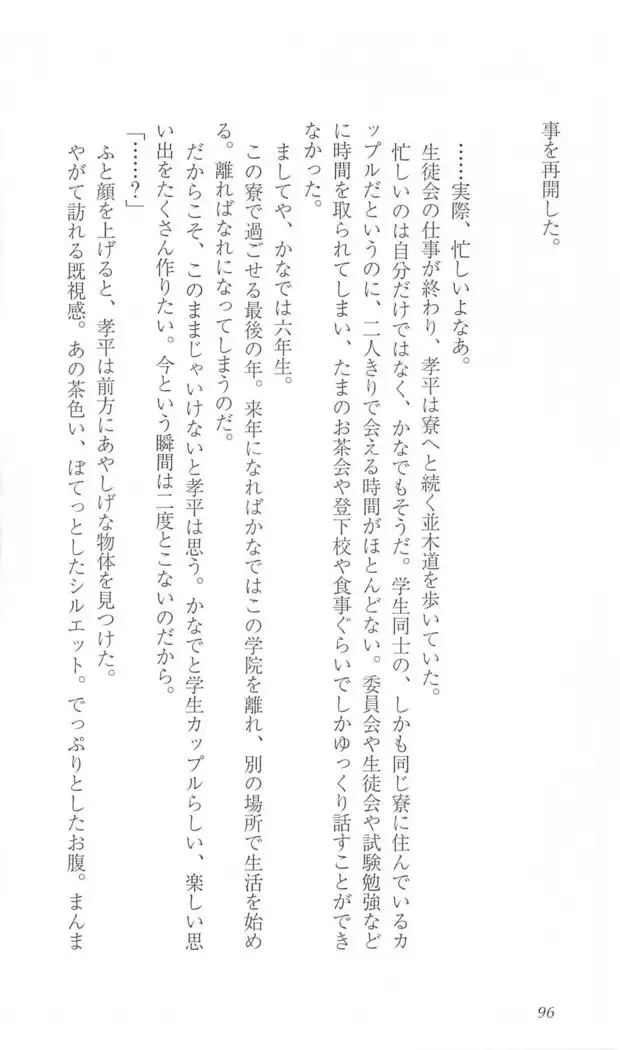 事を再開した。
……実際、忙しいよなあ。
生徒会の仕事が終わり、孝平は寮へと続く並木道を歩いていた。
忙しいのは自分だけではなく、かなでもそうだ。学生同士の、しかも同じ寮に住んでいるカ
ップルだというのに、二人きりで会える時間がほとんどない。委員会や生徒会や試験勉強など
に時間を取られてしまい、たまのお茶会や登下校や食事ぐらいでしかゆっくり話すことができ
なかった。
ましてや、かなでは六年生。
この寮で過ごせる最後の年。来年になればかなではこの学院を離れ、別の場所で生活を始め
る。離ればなれになってしまうのだ。
だからこそ、このままじゃいけないと孝平は思う。かなでと学生カップルらしい、楽しい思
い出をたくさん作りたい。今という瞬間は二度とこないのだから。
「……？」
ふと顔を上げると、孝平は前方にあやしげな物体を見つけた。
やがて訪れる既視感。あの茶色い、ぽてっとしたシルエット。でっぷりとしたお腹。まんま
96